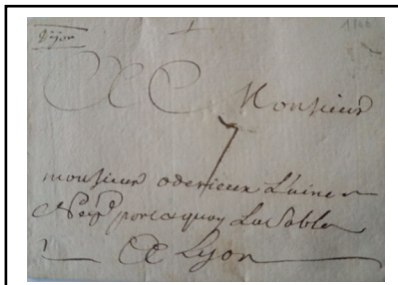 Dijon
A Monsieur
7
monsieur oderieux L'ainé
Neg.t porte quay
A Lyon